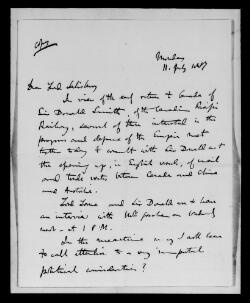 Copy
Monday
11. July 1887
Dear Lord Salisbury
In view of the early return to Canada of
Sir Donald Smith, of the Canadian Pacific
Railway, several of those interested in the
progress and defence of the Empire met
together today to consult with Sir Donald as to
the opening up, in English work, of mail
and trade routes between Canada and China
and Australia.
Lord Lorne and Sir Donald are to have
an interview with
at 1 P.M.
In the meantime may I ask leave
to call attention to a very important
political consideration?